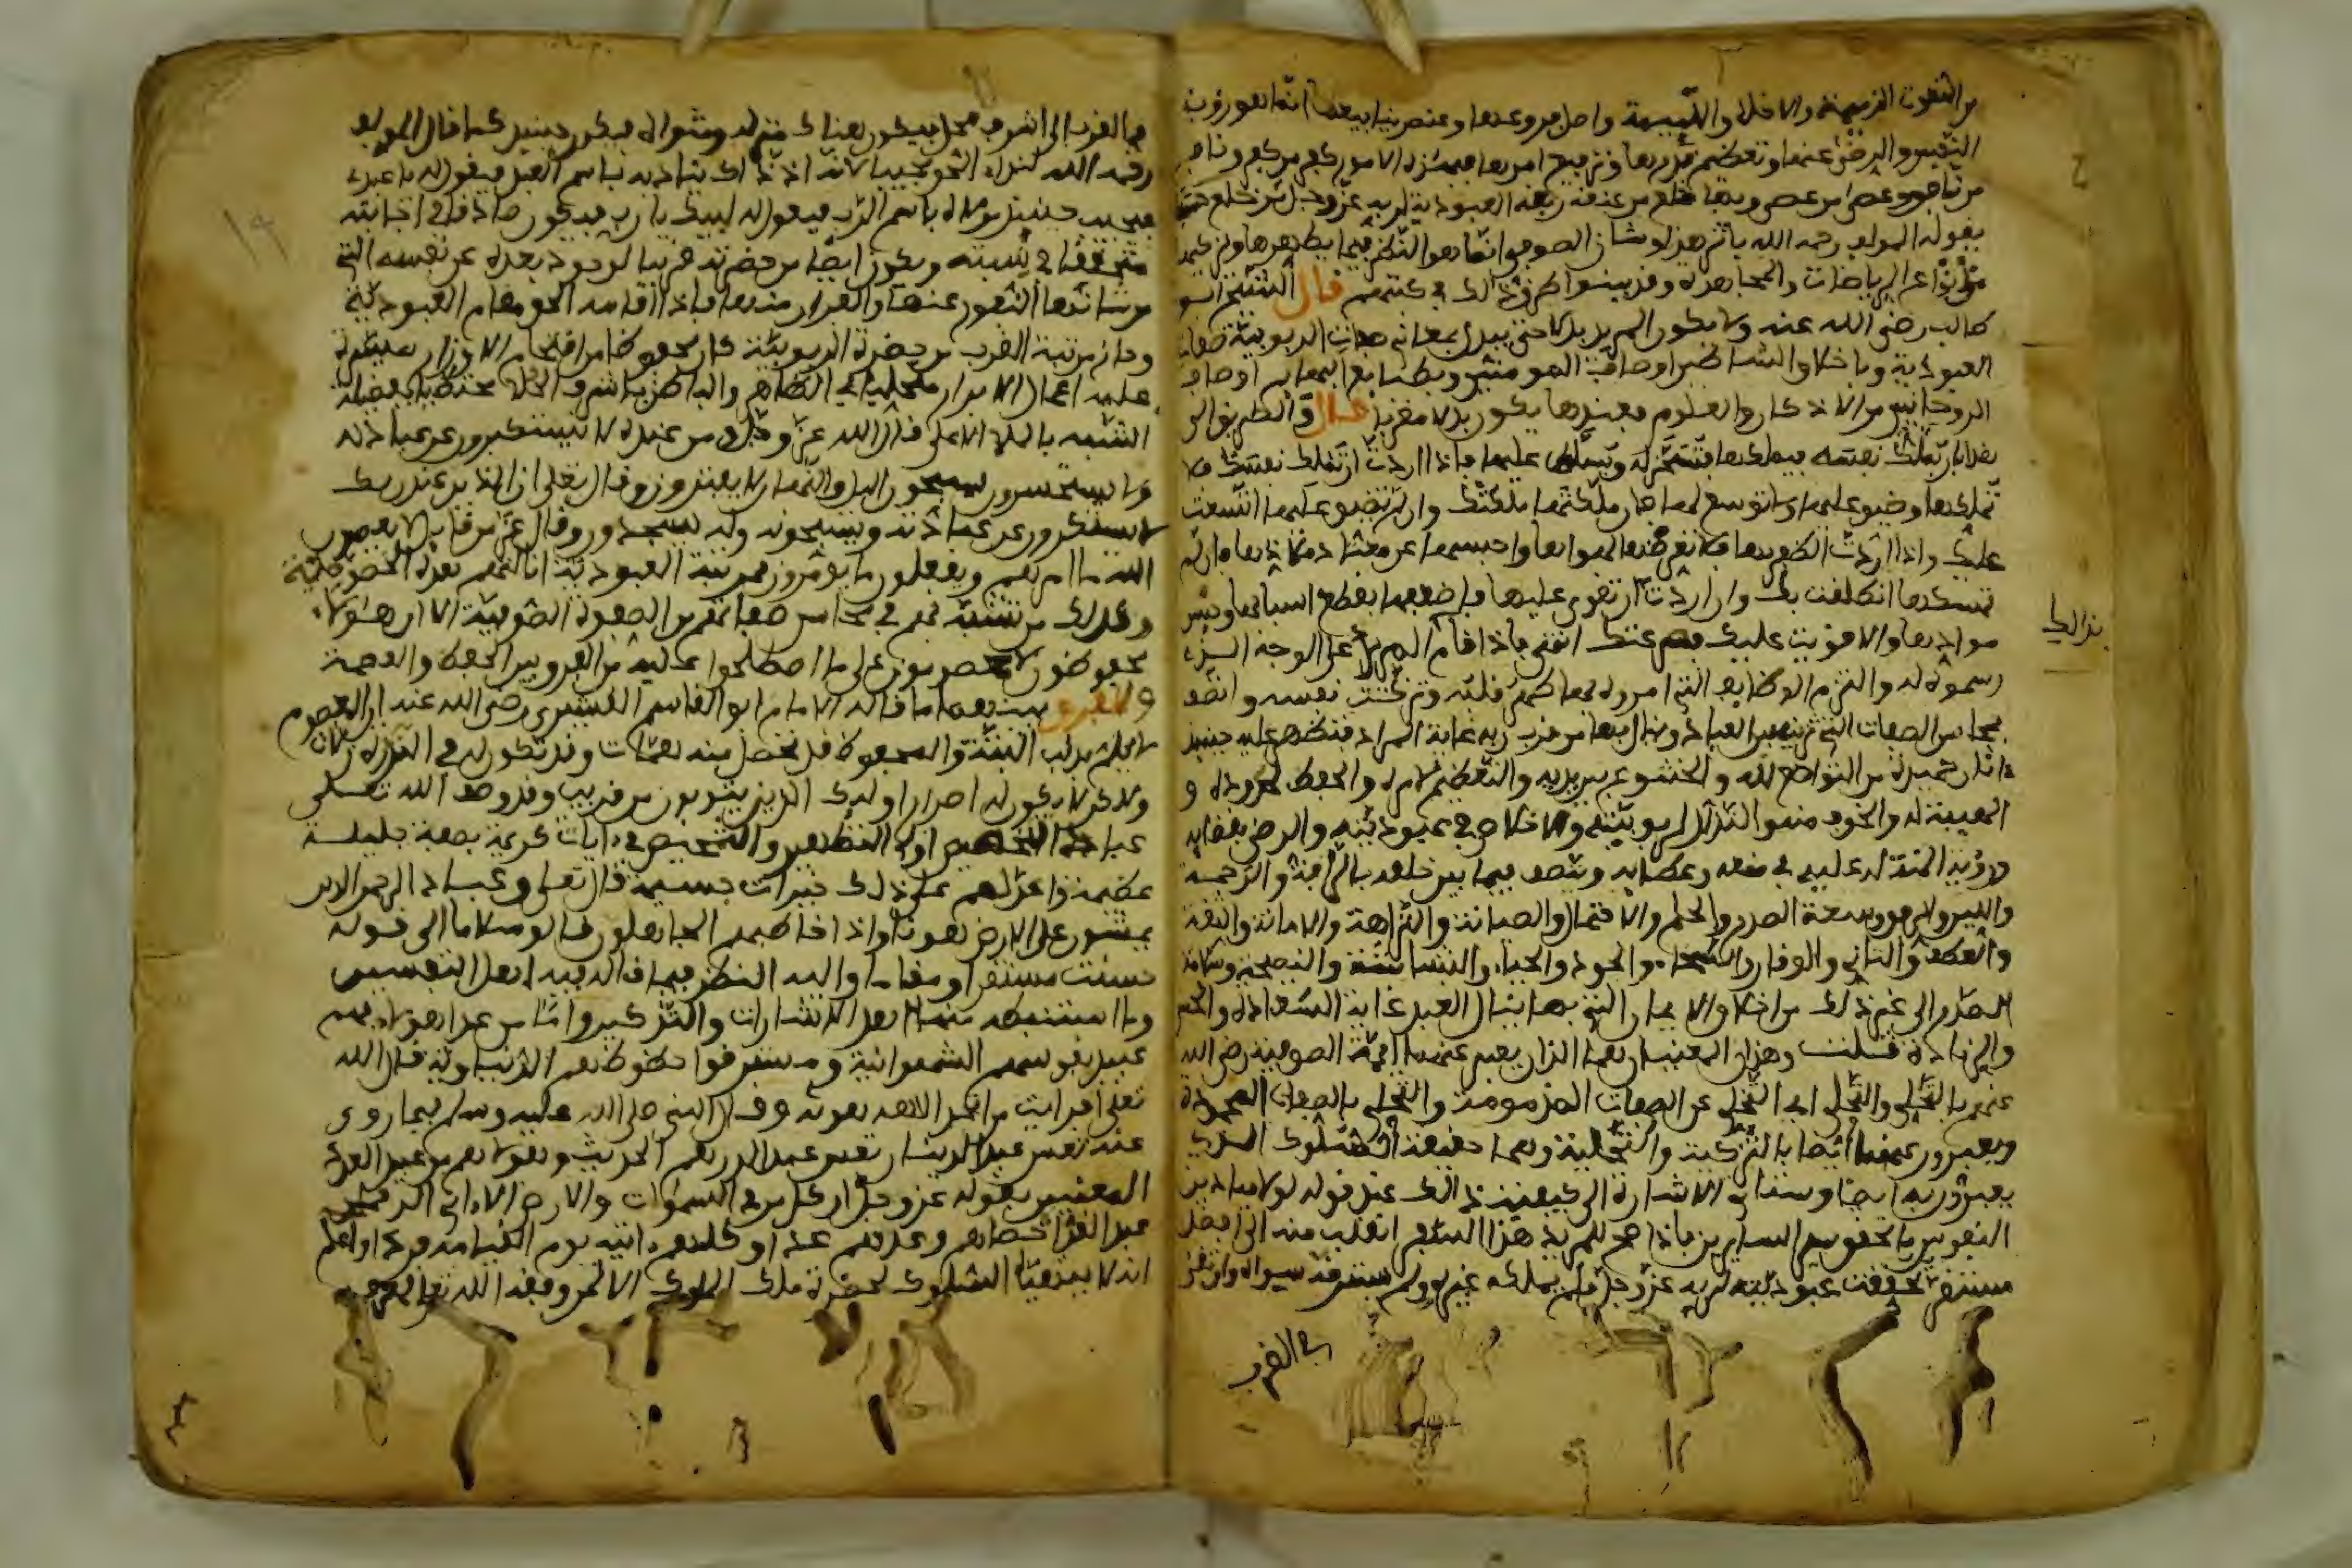 من النعوت الذميمة والاخلاق اللئيمة واصل فروعها وعنصر ينابيعها انما هو رؤية
النفس والرضى عنها وتعظيم قدرها وترفيع امرها فبهذه الامور كفر من كفر ونافق
من نافق وعصى من عصى وبها خلع من عنقه ربقة العبودية لربه عز وجل من خلع
يقوله المولف رحمه الله بانز هذا وشان الصوفي انما هو النظر فيما يطهرها ويزكيها
من الرياضات والمجاهدة وقد بينوا طرق ذلك في كتبهم قال الشيخ ابو
طالب رضي الله عنه ولا يكون المريد بدلا حتى يبدل بمعاني صفات الربوبية صفات
العبودية وباخلاق الشياطين اوصاف المومنين وبطبايع البهايم اوصاف
الروحانيين من الاذكار والعلوم فعندها يكون بدلا مقربا قال والطريق الى
هذا بان تملك نفسه فيملكها فتسخر له وتسلط عليها فاذا اردت ان تملك نفسك فلا
تملكها وضيق عليها ولا توسع لها فان ملكتها ملكتك وان لم تضيق عليها اتسعت
عليك واذا اردت الظفر بها فلا تعرضها لهواها واحبسها عن معتاد ملاذها فان لم
تمسكها انطلقت بك وان اردت ان تقوى عليها فاضعفها بقطع اسبابها وحبس
موادها والا قويت عليك فصرعتك انتهى فاذا قام المريد على الوجه الذي
رسموه له والتزم الوظايف التي امروه بها طهر قلبه وتزكت نفسه واتصف
بمحاسن الصفات التي تزين العباد وينال بها من قرب ربه غاية المراد فتظهر عليه حينئذ
اثار حميدة من التواضع لله والخشوع بين يديه والتعظيم لامره والحفظ لحدوده و
الهيبة له والخوف منه والتذلل لربوبيته والاخلاص في عبوديته والرضى بقضايه
ورؤية المنة له عليه في منعه وعطايه ويتصف فيما بين خلقه بالرافة والرحمة
واللين والرفق وسعة الصدر والحلم والاحتمال والصيانة والنزاهة والامانة والثقة
والعطف والتاني والوقار والسخاء والجود والحياء والبشاشة والنصيحة وسلامة
الصدر الى غير ذلك من اخلاق الايمان التي بها ينال العبد غاية السعادة والحسنى
والزيادة قلت وهذان المعنيان هما اللذان يعبر عنهما ايمة الصوفية رضي الله
عنهم بالتخلي والتحلي اي التخلي عن الصفات المذمومة والتحلي بالصفات المحمودة
ويعبرون عنهما ايضا بالتزكية والتحلية وهما حقيقة السلوك الذي
يعبرون به ايضا وستاتي الاشارة الى كيفية ذلك عند قوله لولا ميادين
النفوس ما تحقق سير السايرين فاذا صح للمريد هذا السفر انقلب منه الى افضل
مستقر تحققت عبوديته لربه عز وجل فلم يملكه غيره ولم يسترقه سواه وان تقر
بذالك
به القرب
به القرب الى اشرف محل فيكون هناك منزله ومثواه فيكون حينئذ كما قال المولف
رحمه الله لنداء الحق مجيبا لانه اذ ذاك يناديه باسم العبد فيقول له يا عبدي
فيجيب حينئذ مولاه باسم الرب فيقول له لبيك يا رب فيكون صادقا في اجابته
متحققا في نسبته ويكون ايضا من حضرته قريبا لوجود بعده عن نفسه التي
من شانها النفور عنها والفرار منها فاذا اقامه الحق مقام العبودية
وحاز مرتبة القرب من حضرة الربوبية كان محفوظا من اقتحام الاوزار ميسرة
عليه اعمال الابرار متحليا في الظاهر والباطن باشرف الحلا محتظيا بفضيلة
الشبه بالملا الاعلى قال الله عز وجل ومن عنده لا يستكبرون عن عبادته
ولا يستحسرون يسبحون اليل والنهار لا يفترون وقال تعلى ان الذين عند ربك
لا يستكبرون عن عبادته ويسبحونه وله يسجدون وقال عز من قايل لا يعصون
الله ما امرهم ويفعلون ما يومرون فمرتبة العبودية انالتهم هذه الخصوصية
وكذلك من تشبه بهم في محاسن صفاتهم من الصفوة الصوفية الا ان هؤلاء
محفوظون لا معصومون على ما اصطلحوا عليه من الفرق بين الحفظ والعصمة
والفرق بينهما ما قاله الامام ابو القاسم القشيري رضي الله عنه ان المعصوم
لا يلم بذنب البتة والمحفوظ قد تحصل منه هفوات وقد تكون له في الندرة زلات
ولاكن لا يكون له اصرار اولئك الذين يتوبون من قريب وقد وصف الله تعلى
عباده المخلصين اولي التطهير والتمحيص في ءايات كريمة بصفة جليلة
عظيمة واعد لهم على ذلك خيرات جسيمة قال تعلى وعباد الرحمن الذين
يمشون على الارض هونا واذا خاطبهم الجاهلون قالوا سلاما الى قوله
حسنت مستقرا ومقاما والله النظر فيما قاله فيه اهل التفسير
وما استنبطه منها اهل الاشارات والتذكير واما من عدا هؤلاء فهم
عبيد نفوسهم الشهوانية ومسترقوا حظوظهم الدنياوية قال الله
تعلى افرايت من اتخذ الاهه هواه وقال النبي صلى الله عليه وسلم فيما روي
عنه تعس عبد الدينار تعس عبد الدرهم الحديث وهؤلاء هم من عبيد العدد
المعنيين بقوله عز وجل ان كل من في السموات والارض الا اتي الرحمن
عبدا لقد احصاهم وعدهم عدا وكلهم ءاتيه يوم القيامة فردا واعلم
انه لا يتهيا السلوك لحضرة ملك الملوك الا لمن وفقه الله تعلى